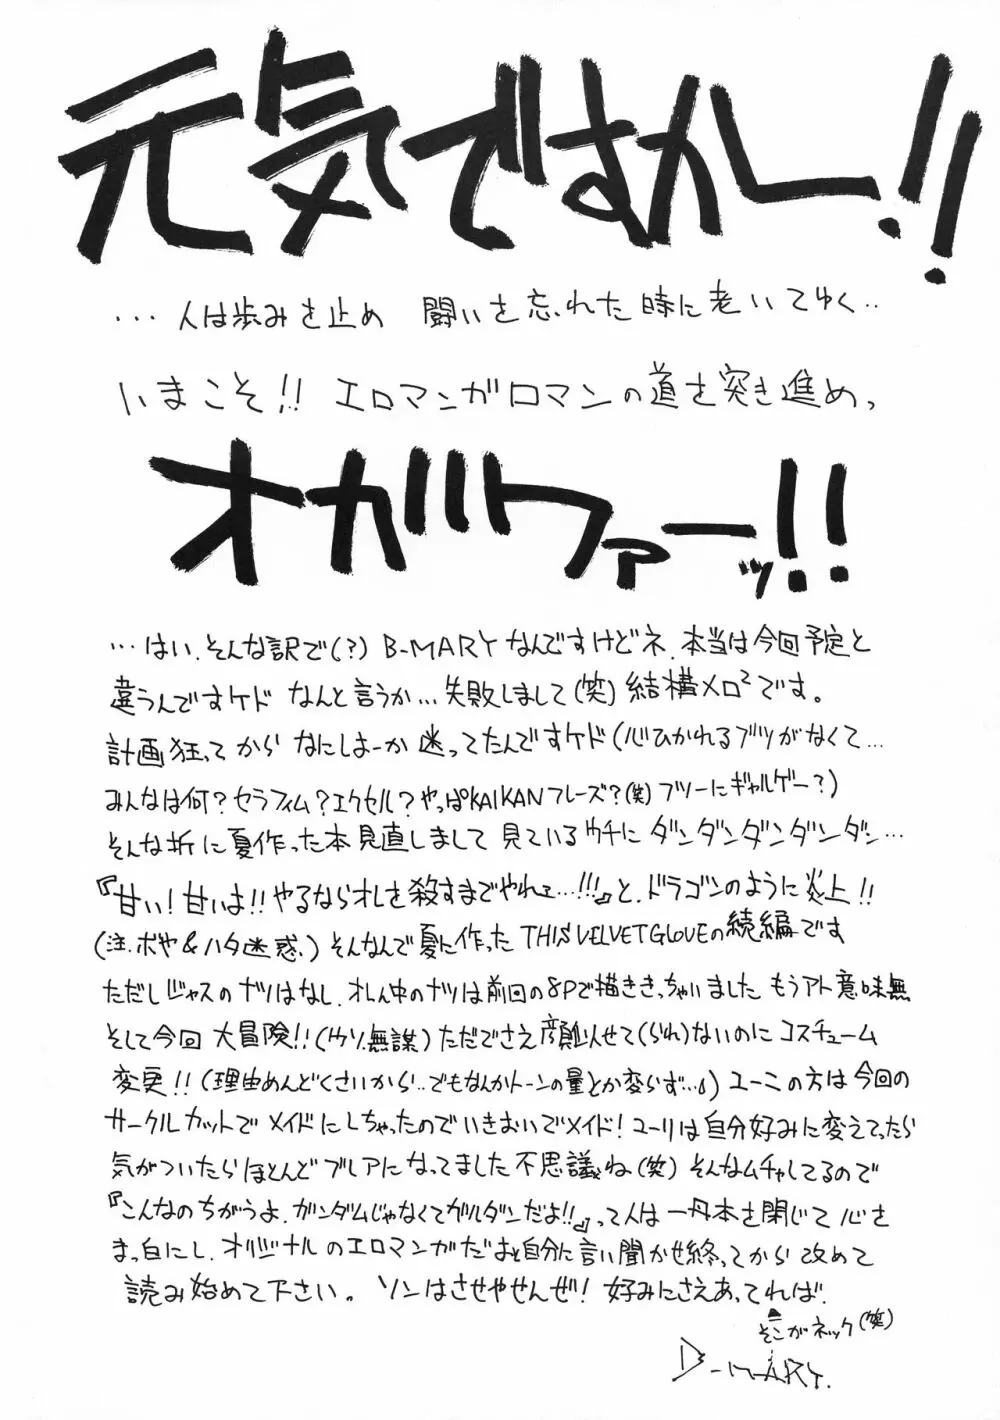 元気ですかー!!
…人は歩みを止め 闘いを忘れた時に老いてゆく‥
いまこそ!! エロマンガロマンの道を突き進めっ
オガワァーッ!!
…はい.そんな訳で(?) B-MARYなんですけどネ.本当は今回予定と
違うんですケド なんと言うか…失敗しまして(笑) 結構メロ²です。
計画狂ってから なにしよーか 迷ってたんですケド(心ひかれるブツがなくて…
みんなは何?セラフィム?エクセル?やっぱKAIKANフレーズ?(笑)フツーにギャルゲー?)
そんな折に夏作った本見直しまして 見ているウチに ダンダンダンダンダン…
『甘い!甘いよ!!やるならオレを殺すまでやれェ…!!!』と、ドラゴンのように炎上!!
(注.ボヤ&ハタ迷惑.) そんなんで夏に作った THIS VELVET GLOVEの続編です
ただしジャスのナツはなし.オレん中のナツは前回の8Pで描ききっちゃいました もうアト意味無
そして今回 大冒険!!(ウソ.無謀) ただでさえ顔似せて(られ)ないのに コスチューム
変更!!(理由めんどくさいから‥でもなんかトーンの量とか変らず…♩) ユーこの方は今回の
サークルカットで メイドにしちゃったのでいきおいでメイド! ユーリは自分好みに変えてったら
気がついたらほとんどブレアになってました 不思議ね(笑) そんなムチャしてるので
『こんなのちがうよ.ガンダムじゃなくてガルダンだよ!!』って人は 一丹本を閉じて 心を
まっ白にし、オリジナルのエロマンガだぁと自分に言い聞かせ終ってから 改めて
読み始めて下さい。 ソンはさせやせんぜ! 好みにさえあってれば.
そこがネック(笑)
B-MARY.